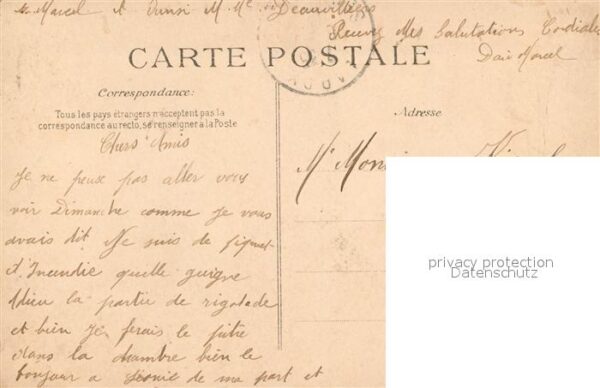 Marcel et M. Me Deauvilliers
Recevez Mes Salutations Cordiales
Marcel
CARTE POSTALE
Correspondance:
Tous les pays étrangers n'acceptent pas la
correspondance au recto, se renseigner à la Poste
Adresse
Chers Amis
Je ne peuse pas aller vous
voir Dimanche comme je vous
avais dit Je suis de piquet
d'Incendie quelle guigne
Adieu la partie de rigolade
et bien je ferais le pitre
dans la chambre bien le
bonjour a de ma part et
Mr
privacy protection
Datenschutz